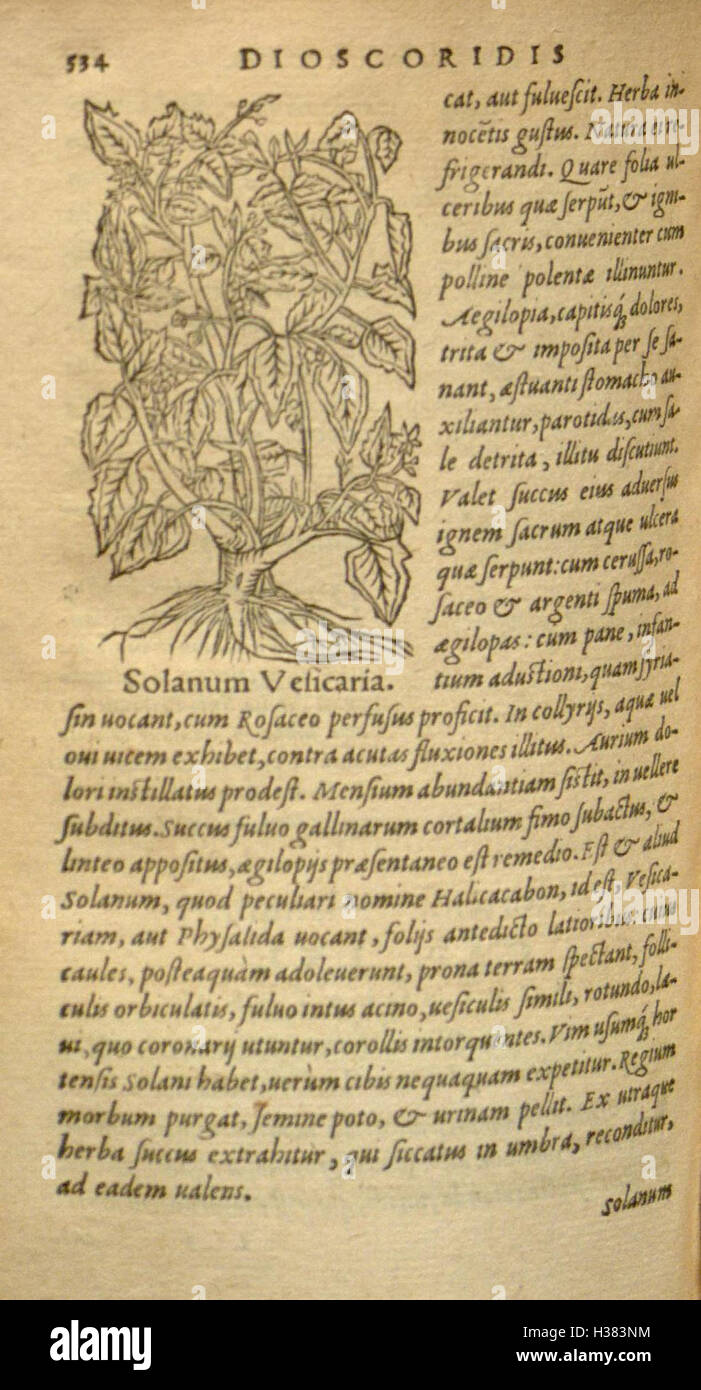 534 DIOSCORIDIS
cat, aut fulueſcit. Herba in-
nocẽtis guſtus. Natura ei re-
frigerandi. Quare folia ul-
ceribus quæ ſerpũt, & igni-
bus ſacris, conuenienter cum
polline polentæ illinuntur.
Aegilopia, capitisq́; dolores,
trita & impoſita per ſe ſa-
nant, æſtuanti ſtomacho au-
xiliantur, parotidas, cum ſa-
le detrita, illitu diſcutiunt.
Valet ſuccus eius aduerſus
ignem ſacrum atque ulcera
quæ ſerpunt: cum ceruſſa, ro-
ſaceo & argenti ſpuma, ad
ægilopas: cum pane, infan-
Solanum Veſicaria.
tium aduſtioni, quam ſyria-
ſin uocant, cum Roſaceo perfuſus proficit. In collyrijs, aquæ uel
oui uicem exhibet, contra acutas fluxiones illitus. Aurium do-
lori inſtillatus prodeſt. Menſium abundantiam ſiſtit, in uellere
ſubditus. Succus fuluo gallinarum cortalium fimo ſubactus, &
linteo appoſitus, ægilopijs præſentaneo eſt remedio. Eſt & aliud
Solanum, quod peculiari nomine Halicacabon, id eſt, Veſica-
riam, aut Phyſalida uocant, folijs antedicto latioribus: cuius
caules, poſteaquàm adoleuerunt, prona terram ſpectant, folli-
culis orbiculatis, fuluo intus acino, ueſiculis ſimili, rotundo, læ-
ui, quo coronarij utuntur, corollis intorquentes. Vim uſumq́; hor
tenſis Solani habet, uerùm cibis nequaquam expetitur. Regium
morbum purgat, ſemine poto, & urinam pellit. Ex utraque
herba ſuccus extrahitur, qui ſiccatus in umbra, reconditur,
ad eadem ualens.
Solanum
alamy stock photo
H383NM
www.alamy.com